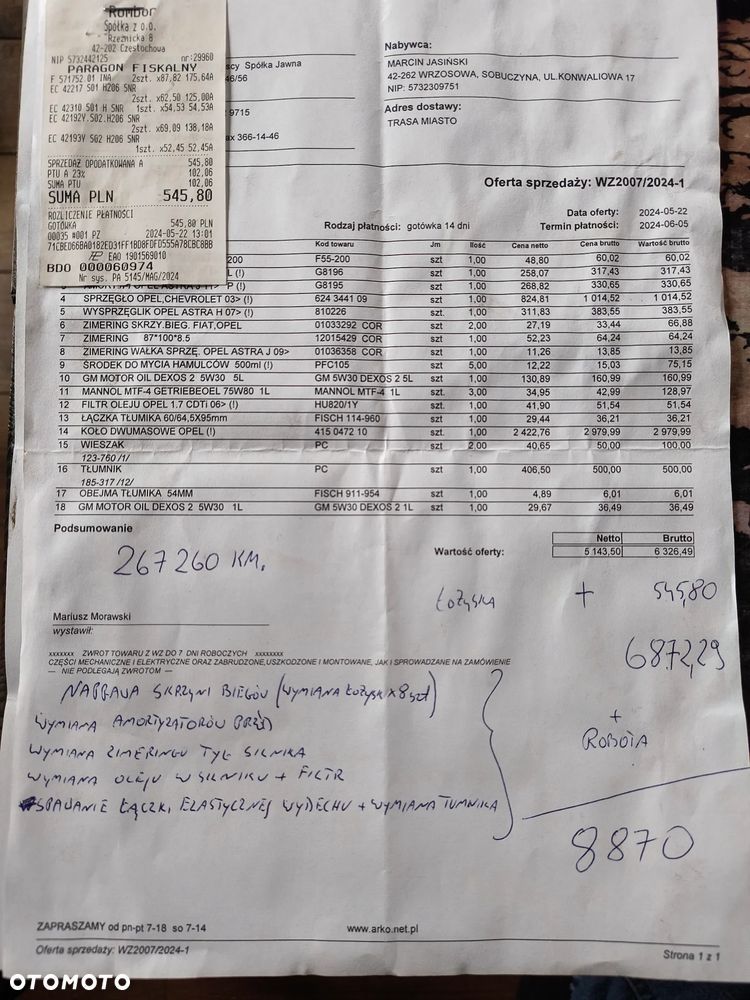 Rombor
Spółka z o.o.
Rzeźnicka 8
42-202 Częstochowa
NIP 5732442125 nr:29960
PARAGON FISKALNY
F 571752.01 INA 2szt. x87,82 175,64A
EC 42217 S01 H206 SNR
2szt. x62,50 125,00A
EC 42310 S01 H SNR 1szt. x54,53 54,53A
EC 42192Y.S02.H206 SNR
2szt. x69,09 138,18A
EC 42193Y S02 H206 SNR
1szt. x52,45 52,45A
SPRZEDAŻ OPODATKOWANA A 545,80
PTU A 23% 102,06
SUMA PTU 102,06
SUMA PLN 545,80
ROZLICZENIE PŁATNOŚCI
GOTÓWKA 545,80 PLN
00035 #001 PZ 2024-05-22 13:01
EAO 1901569010
BDO 000060974
Nr sys. PA 5145/MAG/2024
Spółka Jawna
46/56
9715
ax 366-14-46
Nabywca:
MARCIN JASIŃSKI
42-262 WRZOSOWA, SOBUCZYNA, UL.KONWALIOWA 17
NIP: 5732309751
Adres dostawy:
TRASA MIASTO
Oferta sprzedaży: WZ2007/2024-1
Data oferty: 2024-05-22
Rodzaj płatności: gotówka 14 dni Termin płatności: 2024-06-05
Kod towaru Jm Ilość Cena netto Cena brutto Wartość brutto
200 F55-200 szt 1,00 48,80 60,02 60,02
L (!) G8196 szt 1,00 258,07 317,43 317,43
P (!) G8195 szt 1,00 268,82 330,65 330,65
4 SPRZĘGŁO OPEL,CHEVROLET 03> (!) 624 3441 09 szt 1,00 824,81 1 014,52 1 014,52
5 WYSPRZĘGLIK OPEL ASTRA H 07> (!) 810226 szt 1,00 311,83 383,55 383,55
6 ZIMERING SKRZY.BIEG. FIAT,OPEL 01033292 COR szt 2,00 27,19 33,44 66,88
7 ZIMERING 87*100*8.5 12015429 COR szt 1,00 52,23 64,24 64,24
8 ZIMERING WAŁKA SPRZĘ. OPEL ASTRA J 09> 01036358 COR szt 1,00 11,26 13,85 13,85
9 ŚRODEK DO MYCIA HAMULCÓW 500ml (!) PFC105 szt 5,00 12,22 15,03 75,15
10 GM MOTOR OIL DEXOS 2 5W30 5L GM 5W30 DEXOS 2 5L szt 1,00 130,89 160,99 160,99
11 MANNOL MTF-4 GETRIEBEOEL 75W80 1L MANNOL MTF-4 1L szt 3,00 34,95 42,99 128,97
12 FILTR OLEJU OPEL 1.7 CDTi 06> (!) HU820/1Y szt 1,00 41,90 51,54 51,54
13 ŁĄCZKA TŁUMIKA 60/64,5X95mm FISCH 114-960 szt 1,00 29,44 36,21 36,21
14 KOŁO DWUMASOWE OPEL (!) 415 0472 10 szt 1,00 2 422,76 2 979,99 2 979,99
15 WIESZAK PC szt 2,00 40,65 50,00 100,00
123-760 /1/
16 TŁUMNIK PC szt 1,00 406,50 500,00 500,00
185-317 /12/
17 OBEJMA TŁUMIKA 54MM FISCH 911-954 szt 1,00 4,89 6,01 6,01
18 GM MOTOR OIL DEXOS 2 5W30 1L GM 5W30 DEXOS 2 1L szt 1,00 29,67 36,49 36,49
Podsumowanie
Netto Brutto
Wartość oferty: 5 143,50 6 326,49
267 260 KM.
ŁOŻYSKA + 545,80
6872,29
Mariusz Morawski
wystawił:
xxxxxxx ZWROT TOWARU Z WZ DO 7 DNI ROBOCZYCH xxxxxxxx
CZĘŚCI MECHANICZNE I ELEKTRYCZNE ORAZ ZABRUDZONE,USZKODZONE I MONTOWANE, JAK I SPROWADZANE NA ZAMÓWIENIE
— NIE PODLEGAJĄ ZWROTOM —
NAPRAWA SKRZYNI BIEGÓW (WYMIANA ŁOŻYSK x 8szt)
WYMIANA AMORTYZATORÓW PRZÓD
WYMIANA ZIMERINGU TYŁ SILNIKA
WYMIANA OLEJU W SILNIKU + FILTR
SPAWANIE ŁĄCZKI ELASTYCZNEJ WYDECHU + WYMIANA TŁUMIKA
+
ROBOTA
8870
ZAPRASZAMY od pn-pt 7-18 so 7-14 www.arko.net.pl
Oferta sprzedaży: WZ2007/2024-1 Strona 1 z 1
OTOMOTO